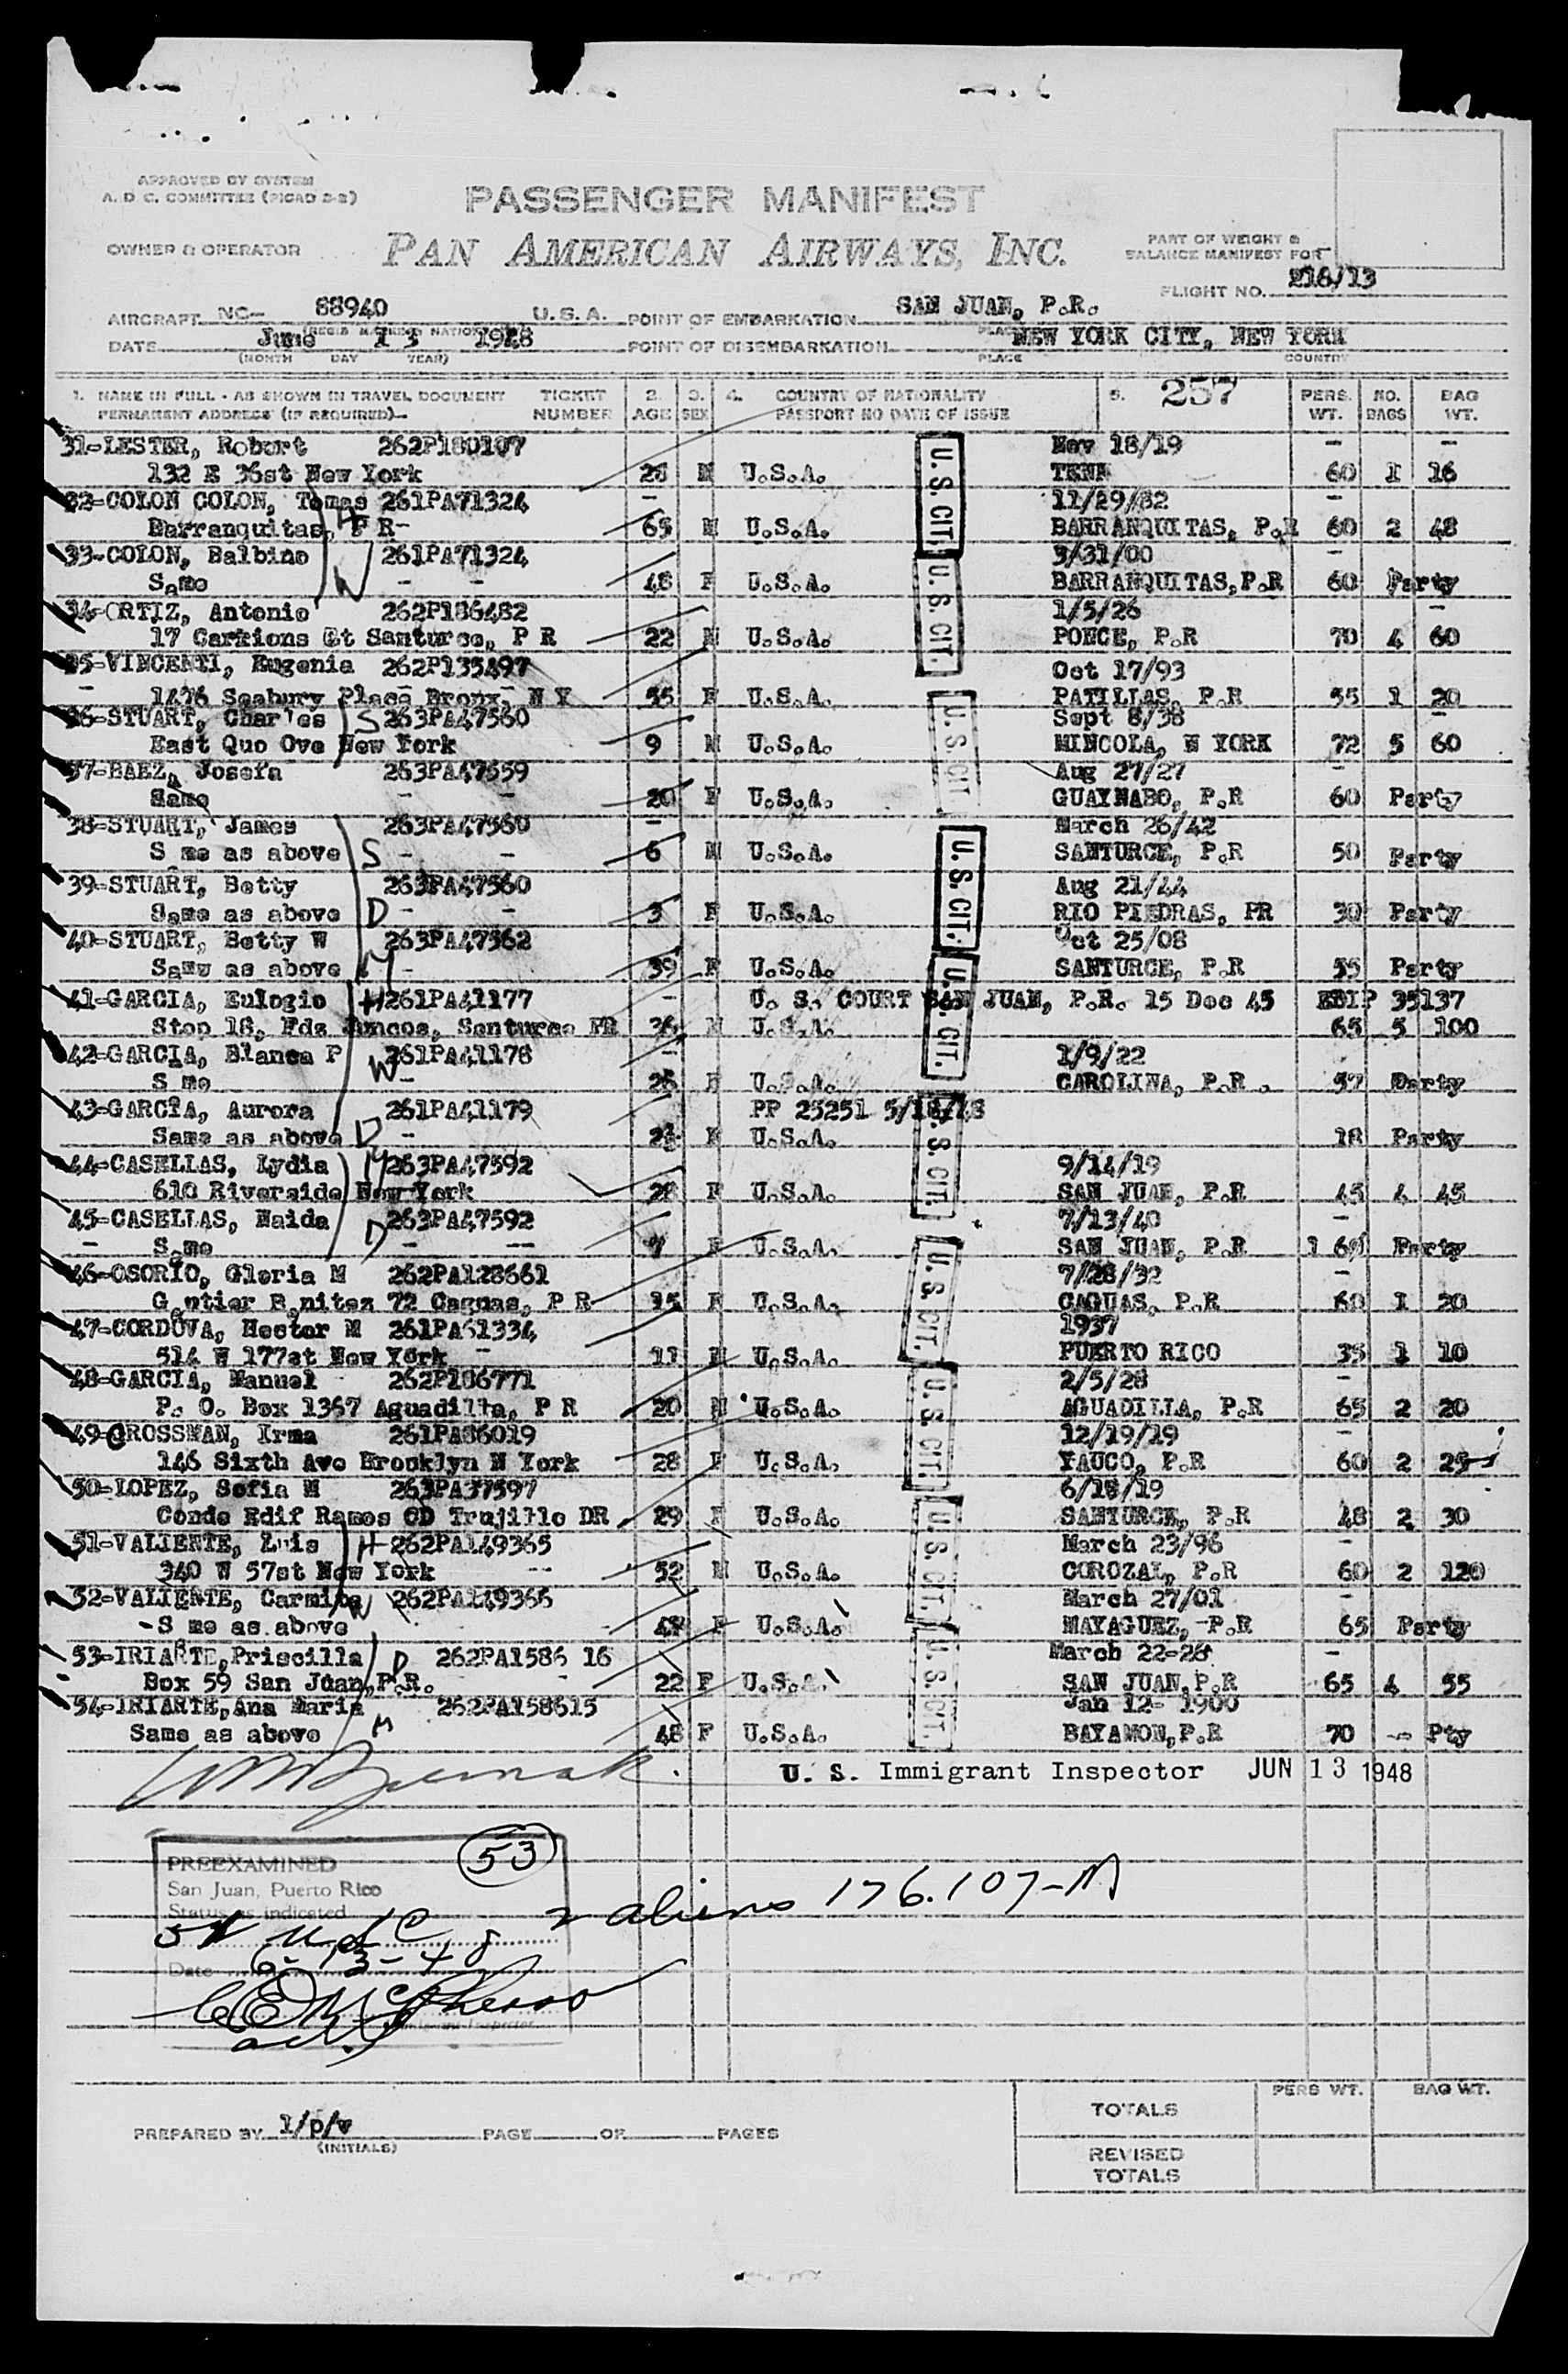 APPROVED BY SYSTEM
A. D C. COMMITTEE (PICAO 2-2)
PASSENGER MANIFEST
OWNER & OPERATOR PAN AMERICAN AIRWAYS, INC.
PART OF WEIGHT &
BALANCE MANIFEST FOR
FLIGHT NO. 216/13
AIRCRAFT NC- 88940 U.S.A. POINT OF EMBARKATION SAN JUAN, P.R.
DATE June 13 1948 POINT OF DISEMBARKATION NEW YORK CITY, NEW YORK
(MONTH DAY YEAR) PLACE COUNTRY
1. NAME IN FULL - AS SHOWN IN TRAVEL DOCUMENT TICKET 2. 3. 4. COUNTRY OF NATIONALITY 5. 257 PERS. NO. BAG
PERMANENT ADDRESS (IF REQUIRED)- NUMBER AGE SEX PASSPORT NO DATE OF ISSUE WT. BAGS WT.
31-LESTER, Robert 262P180107 Nov 18/19 - -
132 E 36st New York 28 M U.S.A. U.S.CIT. TENN 60 1 16
32-COLON COLON, Tomas 261PA71324 - 11/29/82 -
Barranquitas, P R- H 65 M U.S.A. BARRANQUITAS, P.R 60 2 48
33-COLON, Balbino 261PA71324 3/31/00 -
Same W - - 48 F U.S.A. U.S.CIT. BARRANQUITAS,P.R 60 Party
34-ORTIZ, Antonio 262P186482 1/5/26 -
17 Carrions Ct Santurce, P R 22 M U.S.A. PONCE, P.R 70 4 60
35-VINCENTI, Eugenia 262P135497 Oct 17/93
- 1476 Seabury Place Bronx, N Y 55 F U.S.A. PATILLAS, P.R 55 1 20
36-STUART, Charles S 263PA47560 Sept 8/38 -
East Quo Ove New York 9 M U.S.A. U.S.CIT. MINCOLA, N YORK 72 5 60
37-BAEZ, Josefa 263PA47559 Aug 27/27 -
Same - - 20 F U.S.A. GUAYNABO, P.R 60 Party
38-STUART, James 263PA47560 - March 26/42
S me as above S - - 6 M U.S.A. U.S.CIT. SANTURCE, P.R 50 Party
39-STUART, Betty 263PA47560 Aug 21/44
Same as above D - - 3 F U.S.A. RIO PIEDRAS, PR 30 Party
40-STUART, Betty W 263PA47562 Oct 25/08
Same as above M - 39 F U.S.A. SANTURCE, P.R 55 Party
41-GARCIA, Eulogio H 261PA41177 - U. S. COURT SAN JUAN, P.R. 15 Dec 45 35137
Stop 18, Fdz Juncos, Santurce PR 36 M U.S.A. U.S.CIT. 65 5 100
42-GARCIA, Blanca P 261PA41178 - 1/9/22
S me W - 26 F U.S.A. CAROLINA, P.R . 57 Party
43-GARCIA, Aurora 261PA41179 PP 25251 5/18/48
Same as above D - F U.S.A. U.S.CIT. 18 Party
44-CASELLAS, Lydia M 263PA47592 9/14/19
610 Riverside New York 28 F U.S.A. SAN JUAN, P.R 45 4 45
45-CASELLAS, Naida 263PA47592 7/13/40 -
- Same D - -- 7 F U.S.A. SAN JUAN, P.R Party
46-OSORIO, Gloria M 262PA128661 7/28/32 -
Gautier Benitez 72 Caguas, P R 15 F U.S.A. U.S.CIT. CAGUAS, P.R 60 1 20
47-CORDOVA, Hector M 261PA61334 1937
514 W 177st New York - 11 M U.S.A. PUERTO RICO 35 1 10
48-GARCIA, Manuel 262P186771 2/5/28 -
P. O. Box 1367 Aguadilla, P R 20 M U.S.A. U.S.CIT. AGUADILLA, P.R 65 2 20
49-CROSSMAN, Irma 261PA86019 12/19/19 -
146 Sixth Ave Brooklyn N York 28 F U.S.A. YAUCO, P.R 60 2 25
50-LOPEZ, Sofia M 263PA37597 6/18/19
Conde Edif Ramos CD Trujillo DR 29 F U.S.A. U.S.CIT. SANTURCE, P.R 48 2 30
51-VALIENTE, Luis H 262PA149365 March 23/96 -
340 W 57st New York -- 52 M U.S.A. COROZAL, P.R 60 2 120
52-VALIENTE, Carmita W 262PA149366 March 27/01 -
-S me as above 47 F U.S.A. MAYAGUEZ, -P.R 65 Party
53-IRIARTE,Priscilla D 262PA1586 16 March 22-26 -
Box 59 San Juan,P.R. - 22 F U.S.A. U.S.CIT. SAN JUAN,P.R 65 4 55
54-IRIARTE,Ana Maria 262PA158615 Jan 12- 1900
Same as above M 48 F U.S.A. BAYAMON,P.R 70 -- Pty
U. S. Immigrant Inspector JUN 13 1948
PREEXAMINED 53
San Juan, Puerto Rico
Status as indicated
2 aliens 176.107-A
Date 6-13-48
Inspector
PREPARED BY 1/p/v PAGE OF PAGES
(INITIALS)
PERS WT. BAG WT.
TOTALS
REVISED
TOTALS